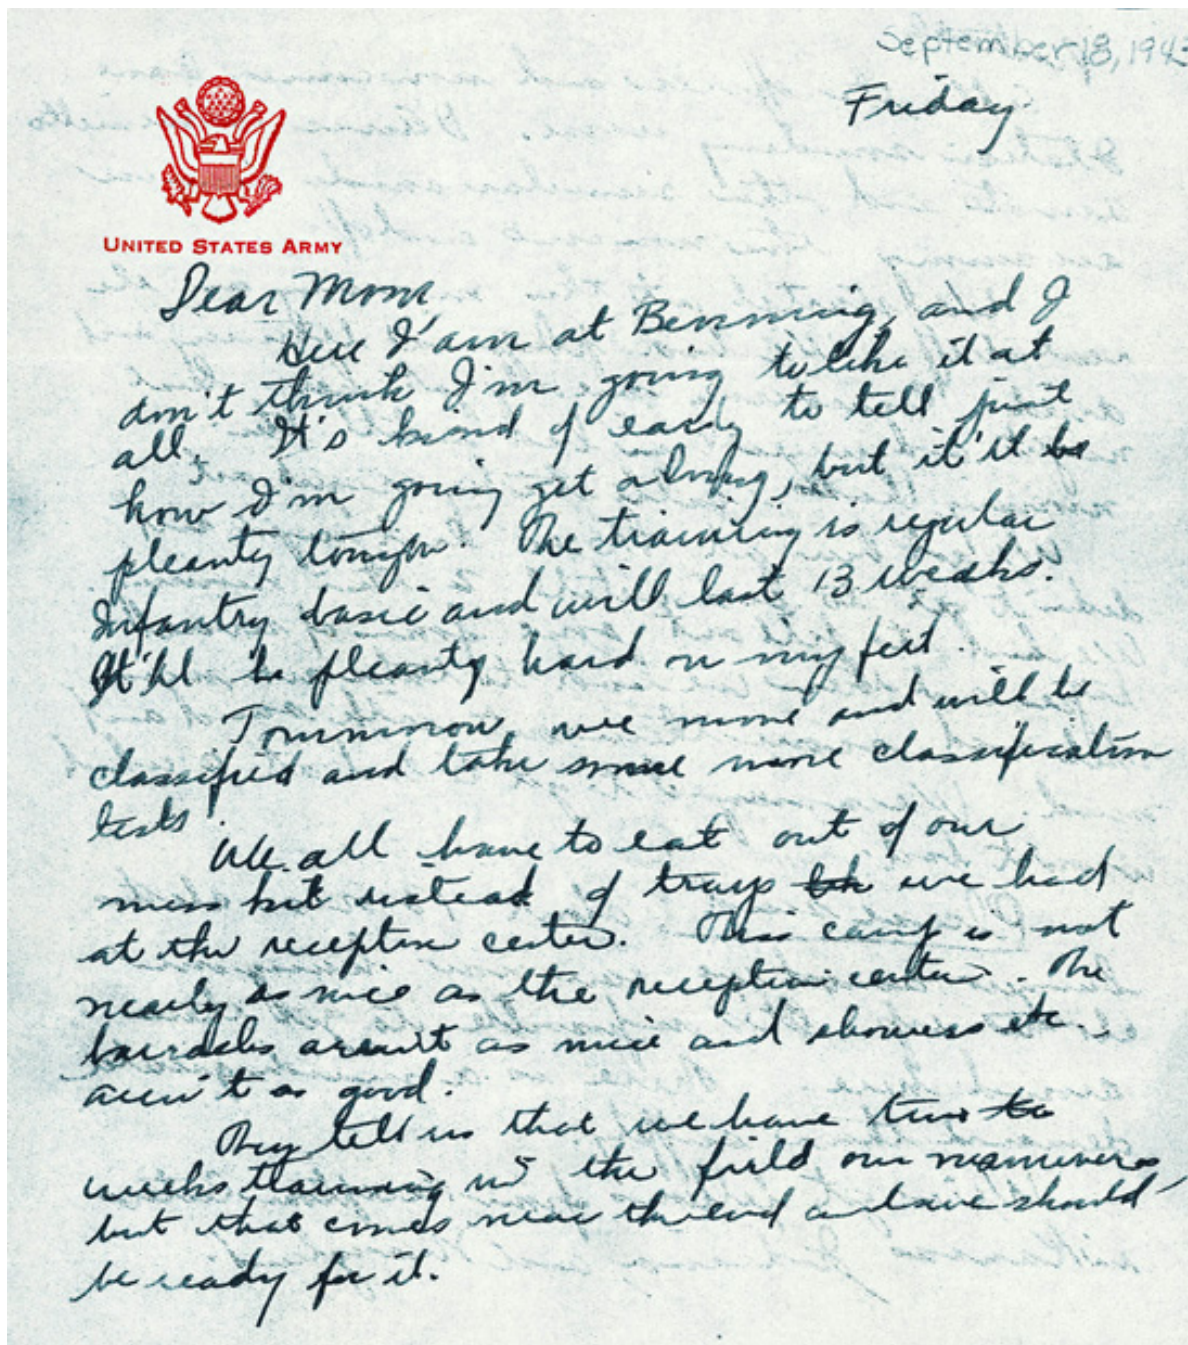 September 18, 1943
Friday
UNITED STATES ARMY
Dear Mom,
Here I am at Benning, and I
don't think I'm going to like it at
all. It's kind of early to tell just
how I'm going get along, but it'll be
pleanty tough. The training is regular
Infantry basic and will last 13 weeks.
It'll be pleanty hard on my feet.
Tommorow we move and will be
classified and take some more classification
tests.
We all have to eat out of our
mess kit instead of trays we had
at the reception center. This camp is not
nearly as nice as the reception center. The
barracks aren't as nice and showers etc.
aren't as good.
They tell us that we have two
weeks training in the field on manuvers,
but that comes near the end and we should
be ready for it.